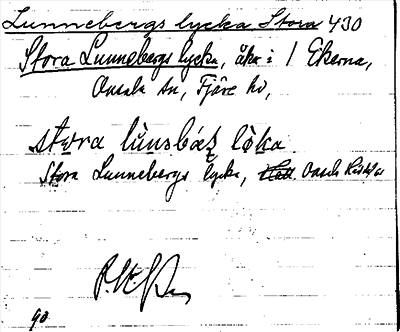 Lunnebergs lycka Stora 430
Stora Lunnebergs lycka, åker i 1 Ekerna,
Onsala sn, Fjäre hd,
stora lùnsbáɽ lö̀ka
Stora Lunnebergs lycka, Onsala
90